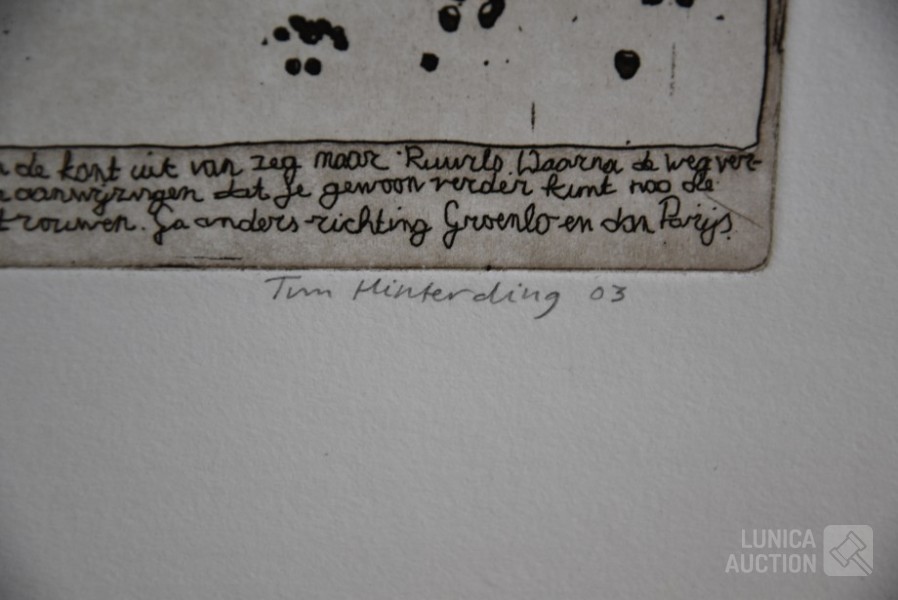 de kant uit van zeg maar Ruurlo. Waarna de weg ver-
aanwijzingen dat je gewoon verder kunt noo de
trouwen. Ga anders richting Groenlo en dan Parijs.
Tim Hinterding 03
LUNICA
AUCTION